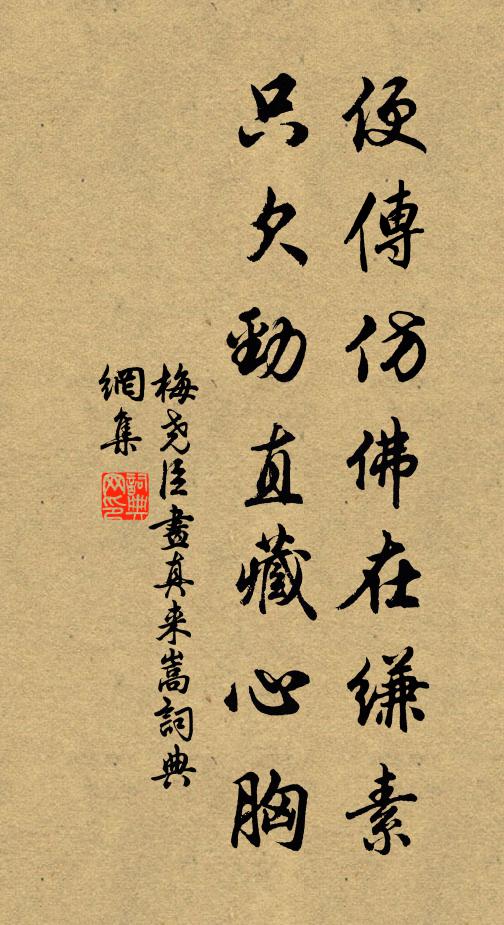 便傳仿佛在縑素
只欠勁直藏心胸
梅尧臣畫真来嵩詞典
網集
詞典
网印